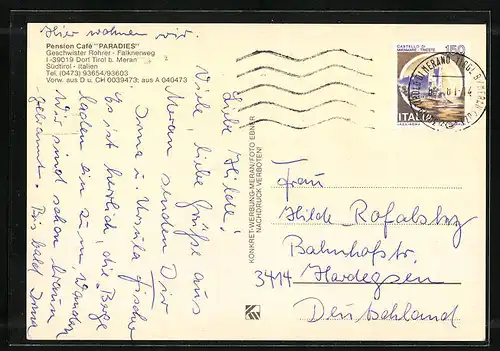 Hier wohnen wir.
Pension Café "PARADIES"
Geschwister Rohrer - Falknerweg
I-39019 Dorf Tirol b. Meran
Südtirol - Italien
Tel. (0473) 93654/93603
Vorw. aus D u. CH 0039473; aus A 040473
Liebe Hilde!
Viele, liebe Grüße aus
Meran senden Dir
Irma u. Ursula Fischer
Es ist herrlich, die Berge
laden ein zum Wandern
Wir sind schon braun
gebrannt. Bis bald Irma
KONKRET-WERBUNG-MERAN/FOTO EBNER
NACHDRUCK VERBOTEN!
CASTELLO DI
MIRAMARE TRIESTE
150
ITALIA
Frau
Hilde Rofalsky
Bahnhofstr.
3414 Hardegsen
Deutschland